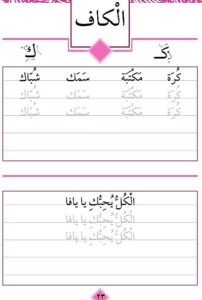 الْكاف
كـ ك
كُرَة مَكْتَبَة سَمَك شُبّاك
كُرَة مَكْتَبَة سَمَك شُبّاك
كُرَة مَكْتَبَة سَمَك شُبّاك
الْكُلُّ يُحِبُّكِ يا يافا
الْكُلُّ يُحِبُّكِ يا يافا
الْكُلُّ يُحِبُّكِ يا يافا
٢٣